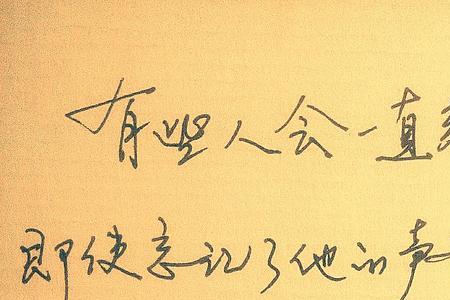 有些人会一直
即使忘记了他的声